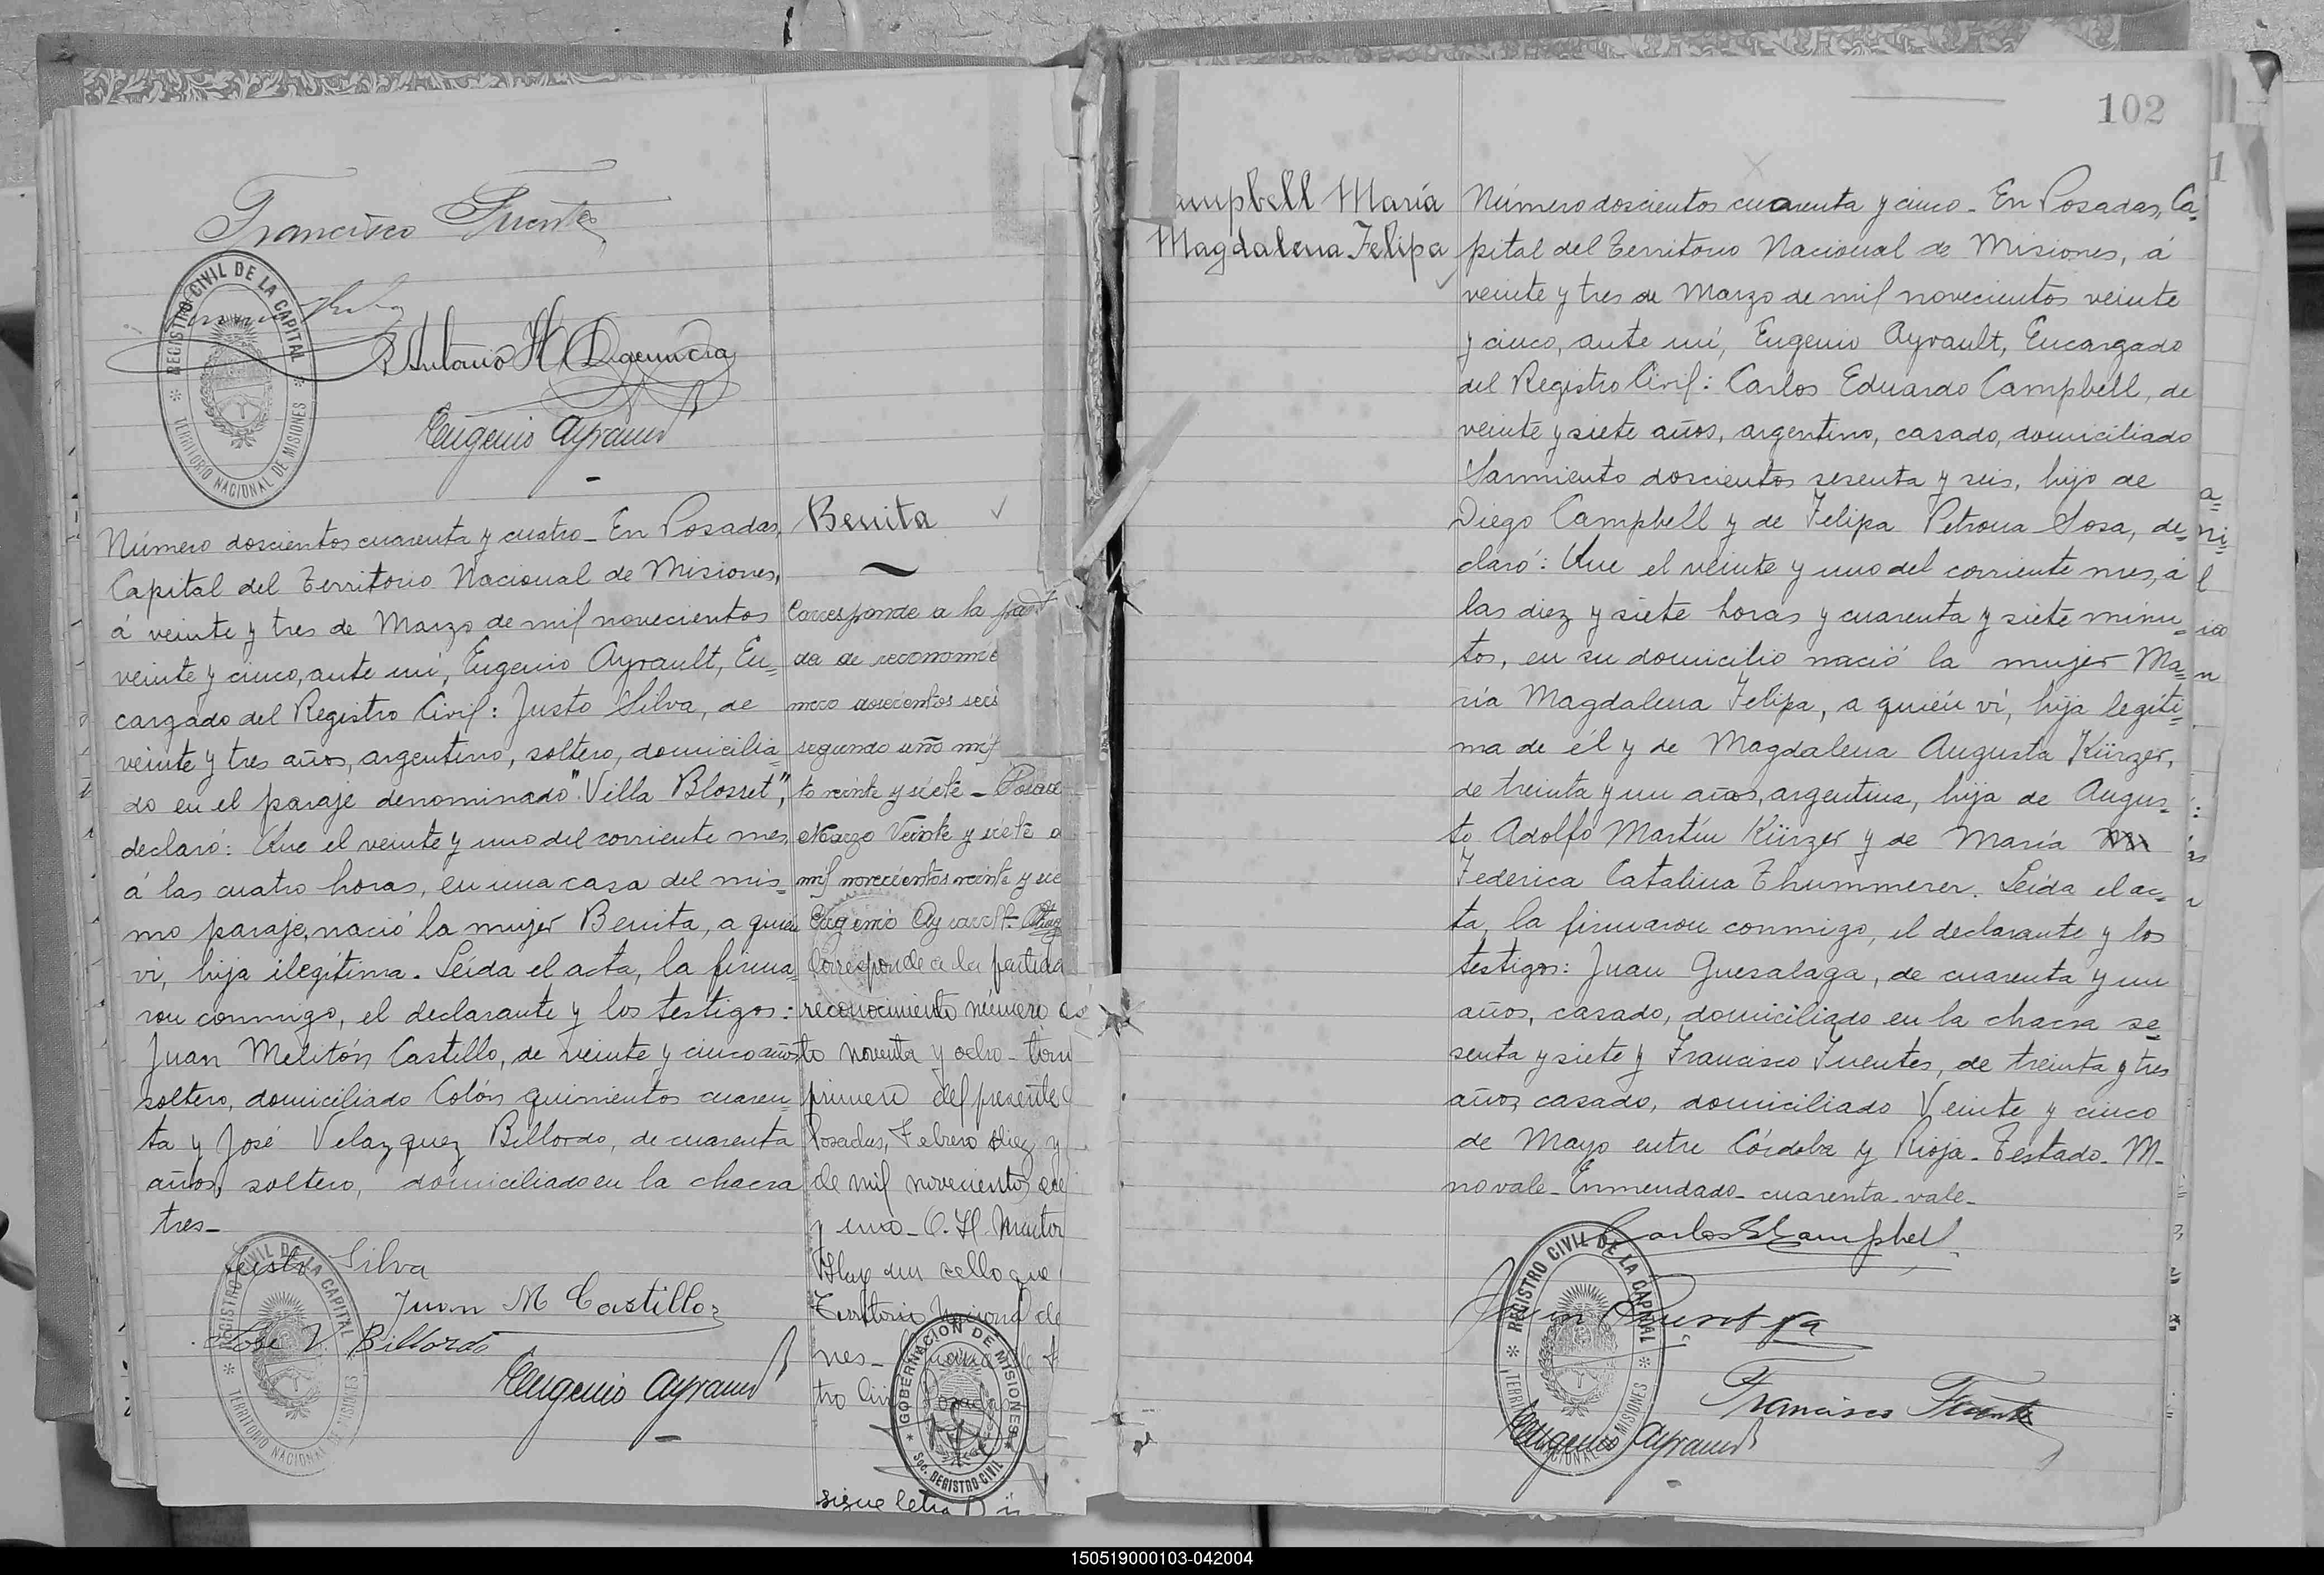 Francisco Fuentes
REGISTRO CIVIL DE LA CAPITAL
TERRITORIO NACIONAL DE MISIONES
Antonio H.
Eugenio Ayrault
Número doscientos cuarenta y cuatro - En Posadas,
Capital del Territorio Nacional de Misiones,
á veinte y tres de Marzo de mil novecientos
veinte y cinco, ante mí, Eugenio Ayrault, En=
cargado del Registro Civil: Justo Silva, de
veinte y tres años, argentino, soltero, domicilia=
do en el paraje denominado "Villa Blosset",
declaró: Que el veinte y uno del corriente mes,
á las cuatro horas, en una casa del mis=
mo paraje, nació la mujer Benita, a quién
vi, hija ilegítima. Leída el acta, la firma=
ron conmigo, el declarante y los testigos:
Juan Melitón Castillo, de veinte y cinco años
soltero, domiciliado Colón quinientos cuaren=
ta y José Velazquez Billordo, de cuarenta
años, soltero, domiciliado en la chacra
tres-
Justo Silva
Juan M Castillo
José V. Billordo
Eugenio Ayrault
REGISTRO CIVIL DE LA CAPITAL
TERRITORIO NACIONAL DE MISIONES
Benita
Corresponde a la part
da de reconocim
mero doscientos seis
segundo año mil
to veinte y siete - Posad
Marzo Veinte y siete d
mil novecientos veinte y sie
Eugenio Ayrault
Corresponde a la partida
reconocimiento número
to noventa y ocho - tom
primero del presente
Posadas, Febrero diez y
de mil novecientos
y uno - O. H.
Hay un sello que
Territorio Nacional de
nes -
tro Civil Posadas
GOBERNACION DE MISIONES
Sec. REGISTRO CIVIL
sigue letra D
102
ampbell María
Magdalena Felipa
Número doscientos cuarenta y cinco - En Posadas, Ca=
pital del Territorio Nacional de Misiones, á
veinte y tres de Marzo de mil novecientos veinte
y cinco, ante mí, Eugenio Ayrault, Encargado
del Registro Civil: Carlos Eduardo Campbell, de
veinte y siete años, argentino, casado, domiciliado
Sarmiento doscientos sesenta y seis, hijo de
Diego Campbell y de Felipa Petrona Sosa, de=
claró: Que el veinte y uno del corriente mes, á
las diez y siete horas y cuarenta y siete minu=
tos, en su domicilio nació la mujer Ma=
ría Magdalena Felipa, a quién vi, hija legíti=
ma de él y de Magdalena Augusta Kürzer,
de treinta y un años, argentina, hija de Augus=
to Adolfo Martín Kürzer y de María M
Federica Catalina Thummerer. Leída el ac=
ta, la firmaron conmigo, el declarante y los
testigos: Juan Guesalaga, de cuarenta y un
años, casado, domiciliado en la chacra se=
senta y siete y Francisco Fuentes, de treinta y tres
años, casado, domiciliado Veinte y cinco
de Mayo entre Córdoba y Rioja. Testado - M -
no vale - Enmendado - cuarenta - vale -
Carlos E Campbell
Francisco Fuentes
Eugenio Ayrault
REGISTRO CIVIL DE LA CAPITAL
TERRITORIO NACIONAL DE MISIONES
150519000103-042004